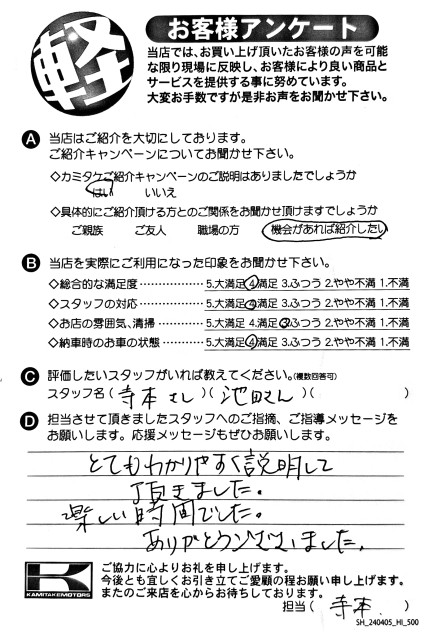 軽
お客様アンケート
当店では、お買い上げ頂いたお客様の声を可能
な限り現場に反映し、お客様により良い商品と
サービスを提供する事に努めています。
大変お手数ですが是非お声をお聞かせ下さい。
A 当店はご紹介を大切にしております。
ご紹介キャンペーンについてお聞かせ下さい。
◇カミタケご紹介キャンペーンのご説明はありましたでしょうか
はい いいえ
◇具体的にご紹介頂ける方とのご関係をお聞かせ頂けますでしょうか
ご親族 ご友人 職場の方 機会があれば紹介したい
B 当店を実際にご利用になった印象をお聞かせ下さい。
◇総合的な満足度 …………… 5.大満足 4.満足 3.ふつう 2.やや不満 1.不満
◇スタッフの対応 …………… 5.大満足 4.満足 3.ふつう 2.やや不満 1.不満
◇お店の雰囲気、清掃 ……… 5.大満足 4.満足 3.ふつう 2.やや不満 1.不満
◇納車時のお車の状態 ……… 5.大満足 4.満足 3.ふつう 2.やや不満 1.不満
C 評価したいスタッフがいれば教えてください。(複数回答可)
スタッフ名( 寺本さん )( 池田さん )( )
D 担当させて頂きましたスタッフへのご指摘、ご指導メッセージを
お願いします。応援メッセージもぜひお願いします。
とてもわかりやすく説明して
頂きました。
楽しい時間でした。
ありがとうございました。
KAMITAKEMOTORS
ご協力に心よりお礼を申し上げます。
今後とも宜しくお引き立てご愛顧の程お願い申し上げます。
またのご来店を心からお待ちしております。
担当( 寺本 )
SH_240405_HI_500